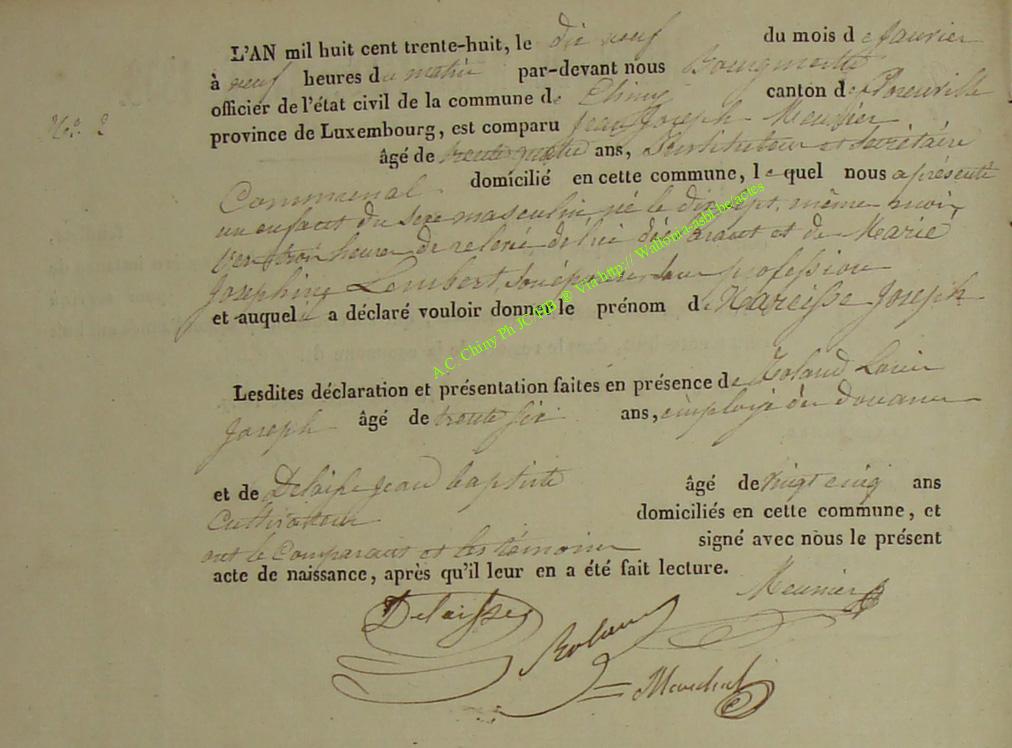 L'AN mil huit cent trente-huit, le dix neuf du mois de Janvier
à neuf heures du matin par-devant nous Bourgmestre
officier de l'état civil de la commune de Chiny canton de florenville
N.o 2 province de Luxembourg, est comparu Jean Joseph Meunier
âgé de trente quatre ans, Instituteur et secrétaire
Communal domicilié en cette commune, lequel nous a présenté
un enfant du sexe masculin né le dix sept même mois
vers trois heures de relevé de lui déclarant et de Marie
Josephine Lambert, son épouse sans profession
et auquel il a déclaré vouloir donner le prénom de Narcisse Joseph
Lesdites déclaration et présentation faites en présence de Roland Louis
Joseph âgé de trente six ans, employé des douanes
et de Delaisse Jean baptiste âgé de vingt cinq ans
Cultivateur domiciliés en cette commune, et
ont le Comparant et les témoins signé avec nous le présent
acte de naissance, après qu'il leur en a été fait lecture.
Meunier
Delaisse
Roland
Marechal
A.C. Chiny Ph JC @ Via http:// Wallonia-asbl.be/actes